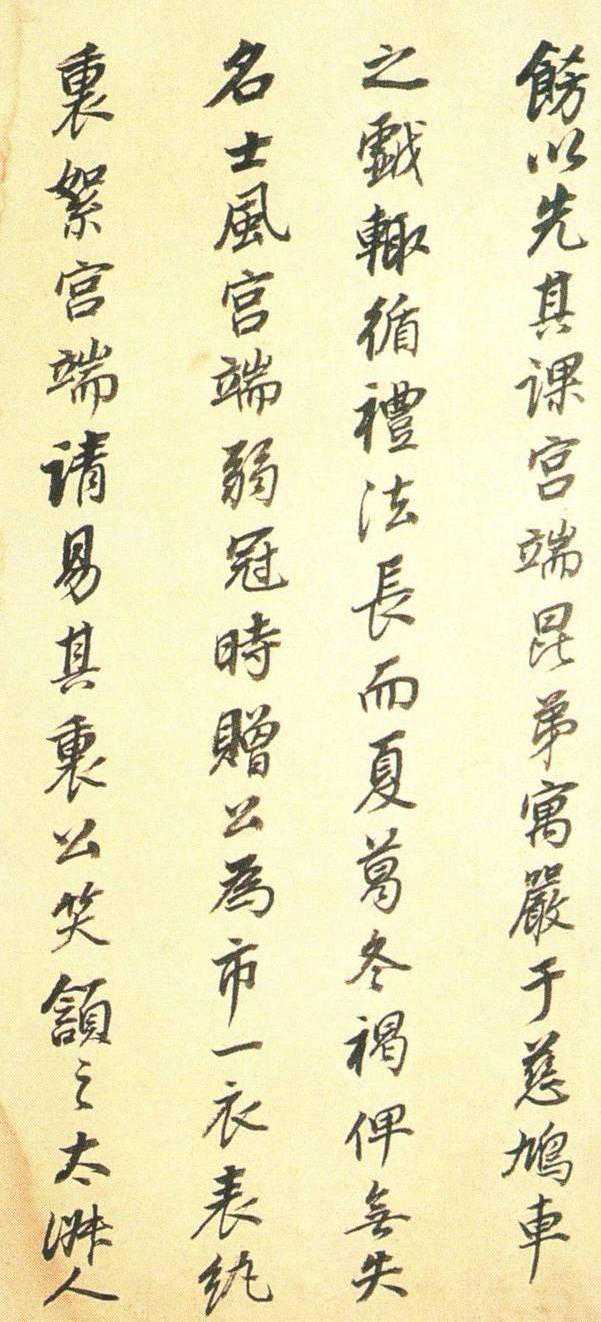 餝以先其課宮端昆弟寓嚴于慈鳩車
之戲輙循禮法長而夏葛冬褐俾無失
名士風宮端弱冠時贈公為市一衣表紈
裏絮宮端请易其裏公笑頷之太淑人